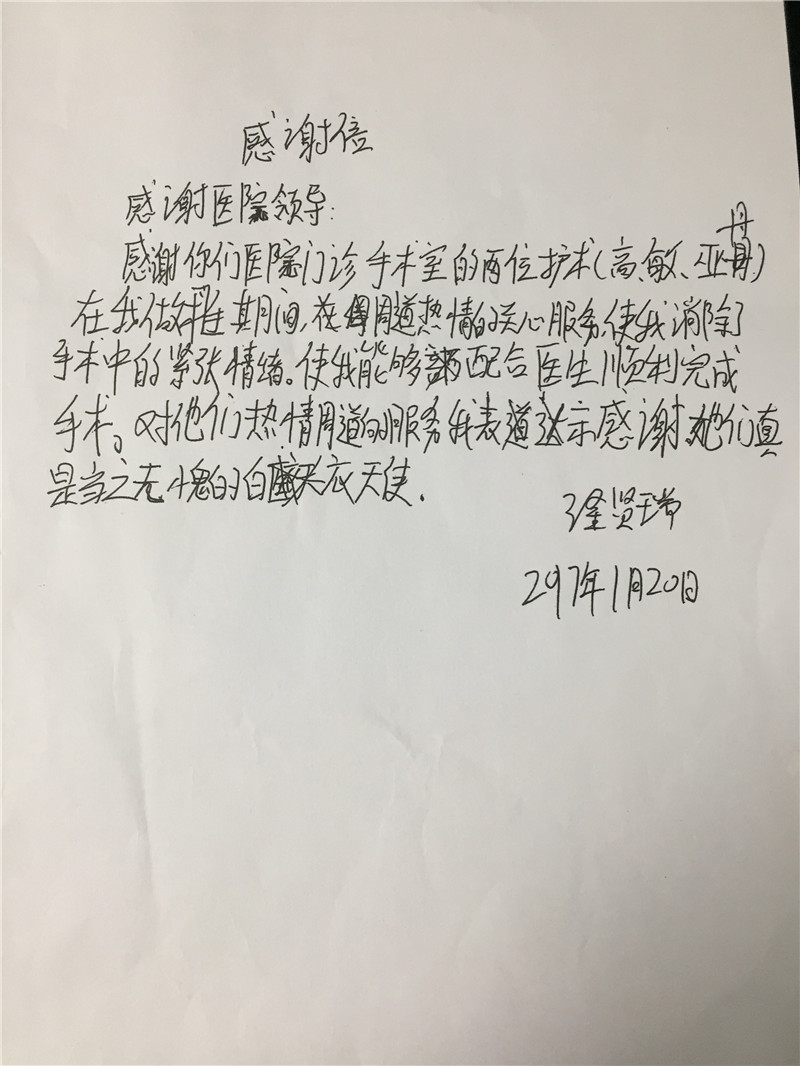 感谢信
感谢医院领导:
感谢你们医院门诊手术室的两位护士(高敏、巫丹)
在我做 期间,在 周道热情的关心服务使我消除了
手术中的紧张情绪。使我能够 配合医生顺利完成
手术。对他们热情周道的服务我表 示感谢,她们真
是当之无愧的白 衣天使.
涂贤瑞
2017年1月20日